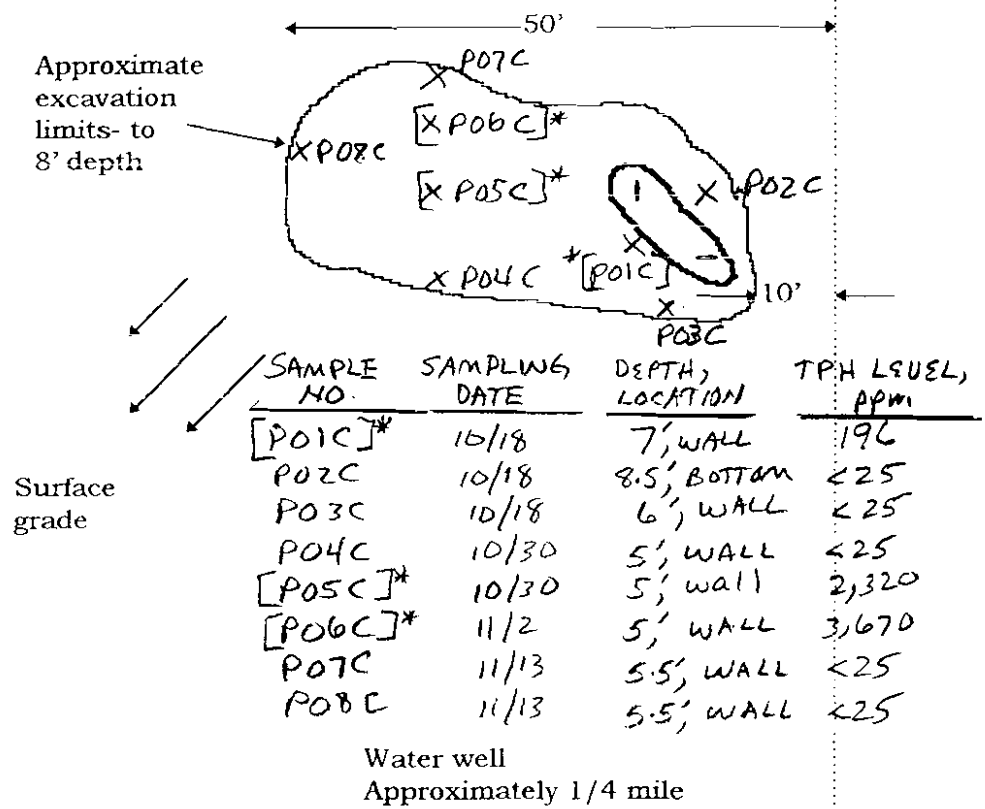 50'
Approximate
excavation
limits- to
8' depth
P07C
[X P06C]*
X P08C
[X P05C]*
1
X P02C
*[P01C]
X P04C
10'
X
P03C
SAMPLE NO. SAMPLING DATE DEPTH, LOCATION TPH LEVEL, ppm
[P01C]* 10/18 7', WALL 196
P02C 10/18 8.5', BOTTOM <25
P03C 10/18 6', WALL <25
P04C 10/30 5', WALL <25
[P05C]* 10/30 5', wall 2,320
[P06C]* 11/2 5', WALL 3,670
P07C 11/13 5.5', WALL <25
P08C 11/13 5.5', WALL <25
Surface
grade
Water well
Approximately 1/4 mile